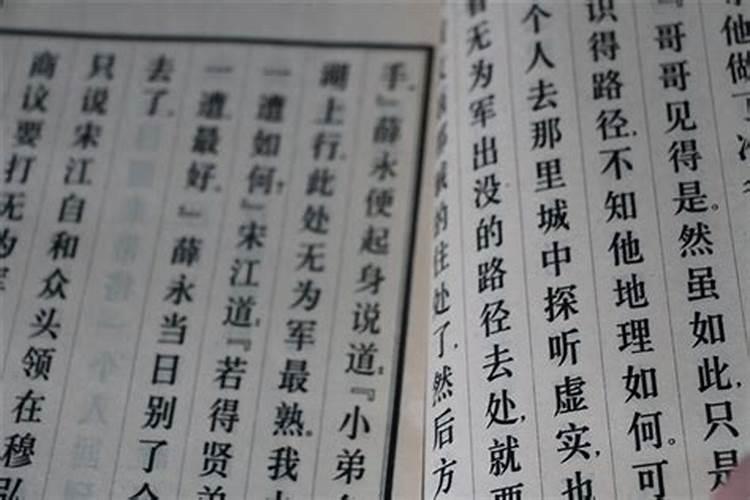 他做
『哥哥见得是。然虽如此,只是
识得路径,不知他地理如何。可
个人去那里城中探听虚实,也
无为军出没的路径去处,就要
的住处了,然后方
手。』薛永便起身说道:『小弟
湖上行,此处无为军最熟。我
一遭如何?』宋江道:『若得贤弟
一遭最好。』薛永当日别了
去了。
只说宋江自和众头领在穆弘
商议要打无为军